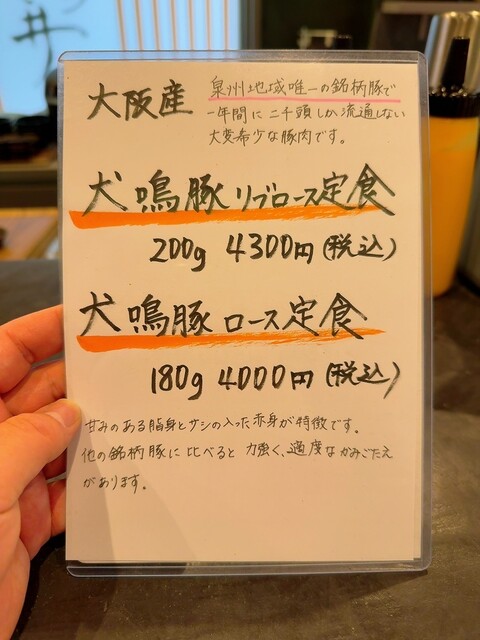 井
大阪産
泉州地域唯一の銘柄豚で
一年間に二千頭しか流通しない
大変希少な豚肉です。
犬鳴豚リブロース定食
200g 4300円(税込)
犬鳴豚ロース定食
180g 4000円(税込)
甘みのある脂身とサシの入った赤身が特徴です。
他の銘柄豚に比べると力強く、適度なかみごたえ
があります。